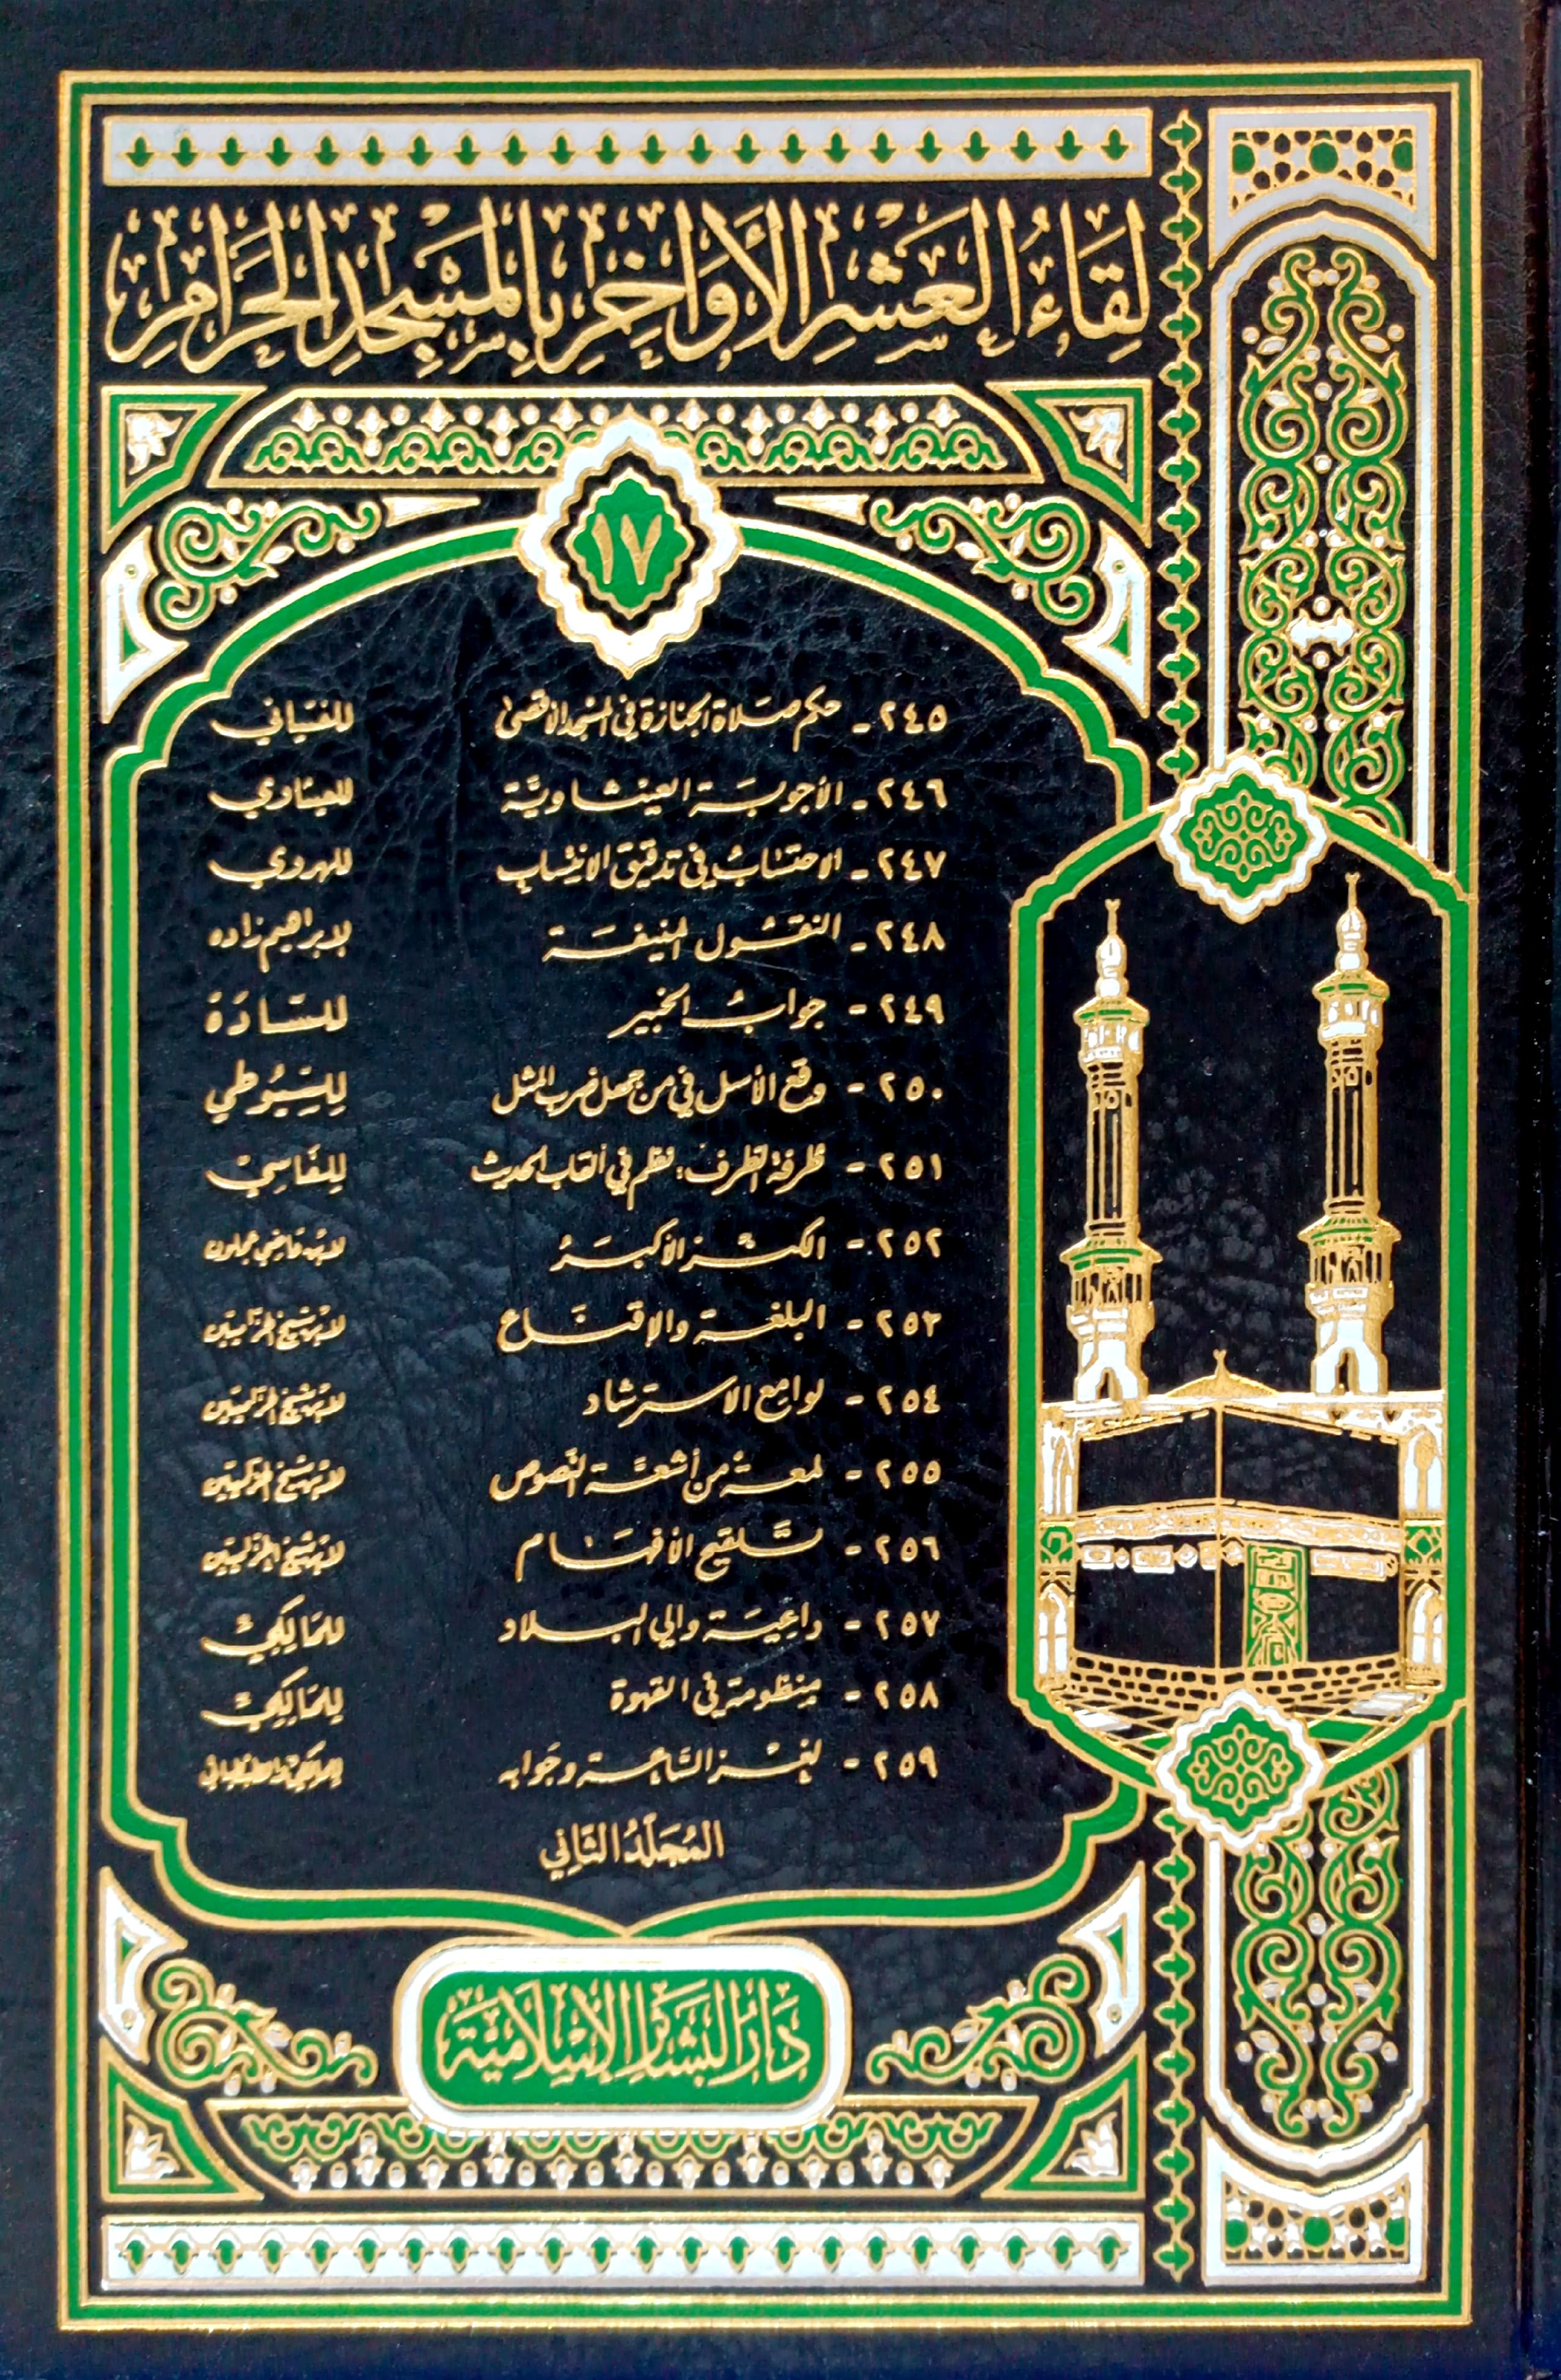 لِقَاءُ العَشْرِ الأَوَاخِرِ بِالمَسْجِدِ الحَرَامِ
١٧
٢٤٥ - حكم صلاة الجنازة في المسجد الأقصى للغياني
٢٤٦ - الأجوبة العيثاوية للعيثاوي
٢٤٧ - الاحتساب في تدقيق الانتساب للهروي
٢٤٨ - النقول المنيفة لإبراهيم زاده
٢٤٩ - جواب الخبير للسادة
٢٥٠ - وقع الأسل في من جهل ضرب المثل للسيوطي
٢٥١ - طرفة الطرف: نظم في ألقاب الحديث للفاسي
٢٥٢ - الكنز الأكبر لابن قاضي عجلون
٢٥٣ - البلغة والإقناع لابن شيخ الحزاميين
٢٥٤ - لوامع الاسترشاد لابن شيخ الحزاميين
٢٥٥ - لمعة من أشعة النصوص لابن شيخ الحزاميين
٢٥٦ - تلقيح الأفهام لابن شيخ الحزاميين
٢٥٧ - داعية والي البلاد للمالكي
٢٥٨ - منظومة في القهوة للمالكي
٢٥٩ - لغز الساعة وجوابه
المُجَلَّدُ الثَّانِي
دَارُ البَشَائِرِ الإِسْلَامِيَّة